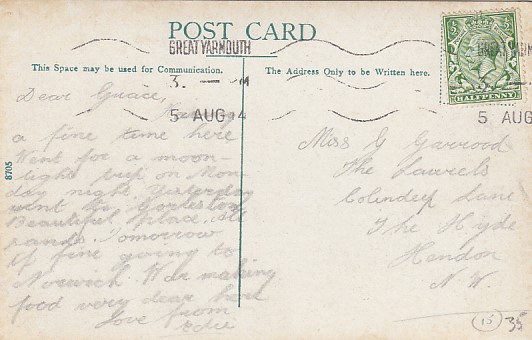 POST CARD
GREAT YARMOUTH
This Space may be used for Communication.
The Address Only to be Written here.
3. — M
5 AUG 14
5 AUG
HALFPENNY
8705
Dear Grace,
a fine time here
Went for a moon-
light trip on Mon-
day night. Yesterday
went to Gorleston
Beautiful place. All
sands. Tomorrow
if fine going to
Norwich. War making
food very dear here
Love from
Edie
Miss G Garrood
The Laurels
Colindeep Lane
The Hyde
Hendon
N.W.
15
35